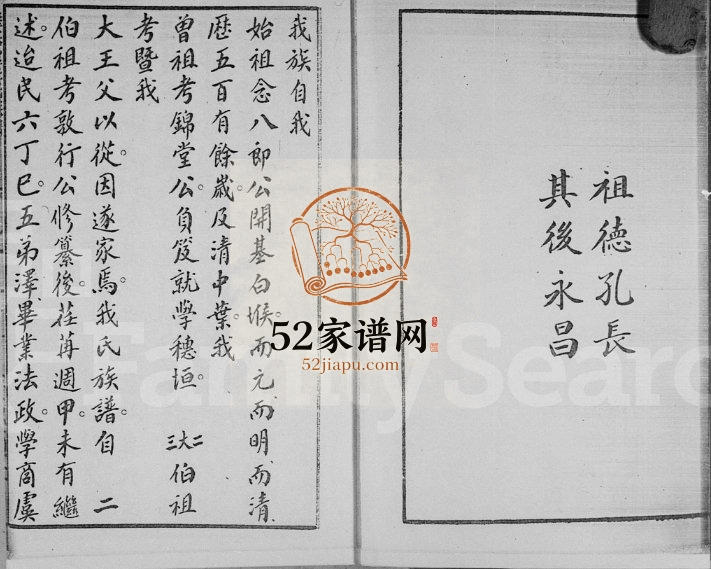 祖德孔長
其後永昌
我族自我
始祖念八郎公開基白堠。而元而明而清
歷五百有餘歲。及清中葉。我
曾祖考錦堂公。負笈就學穗垣。二大三伯祖
考暨我
大王父以從。因遂家焉。我氏族譜。自 二
伯祖考敦行公。修纂後。荏苒週甲。未有繼
述。迨民六丁巳。五弟澤畢業法政。學商虞
52家谱网
52jiapu.com
Family Searc